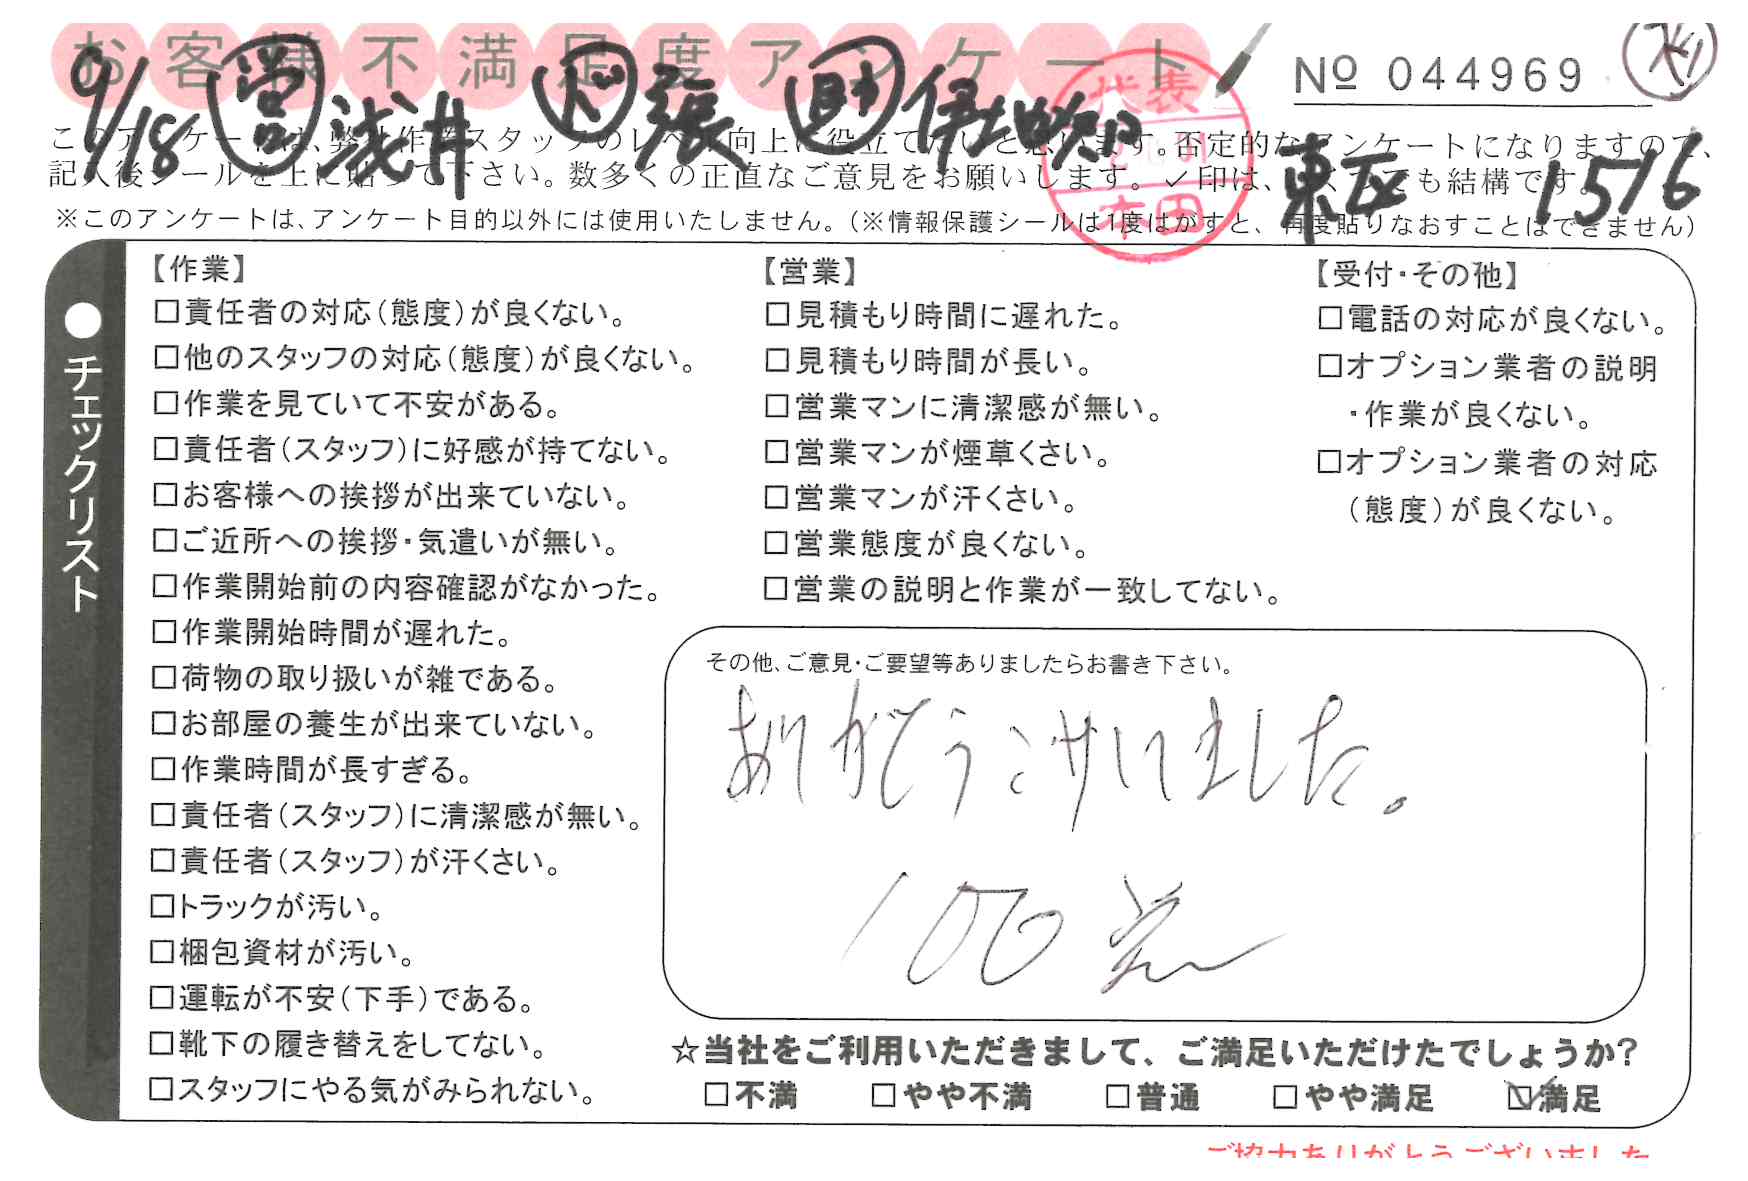 お客様不満足度アンケート
№ 044969
9/18 営 浅井 ド 張 助 伊地知 東区 1516
このアンケートは、弊社作業スタッフのレベル向上に役立てたいと思います。否定的なアンケートになりますので、
記入後シールを上に貼って下さい。数多くの正直なご意見をお願いします。✓印は、いくつでも結構です。
※このアンケートは、アンケート目的以外には使用いたしません。(※情報保護シールは1度はがすと、再度貼りなおすことはできません)
代表
本田
●チェックリスト
【作業】
□責任者の対応(態度)が良くない。
□他のスタッフの対応(態度)が良くない。
□作業を見ていて不安がある。
□責任者(スタッフ)に好感が持てない。
□お客様への挨拶が出来ていない。
□ご近所への挨拶・気遣いが無い。
□作業開始前の内容確認がなかった。
□作業開始時間が遅れた。
□荷物の取り扱いが雑である。
□お部屋の養生が出来ていない。
□作業時間が長すぎる。
□責任者(スタッフ)に清潔感が無い。
□責任者(スタッフ)が汗くさい。
□トラックが汚い。
□梱包資材が汚い。
□運転が不安(下手)である。
□靴下の履き替えをしてない。
□スタッフにやる気がみられない。
【営業】
□見積もり時間に遅れた。
□見積もり時間が長い。
□営業マンに清潔感が無い。
□営業マンが煙草くさい。
□営業マンが汗くさい。
□営業態度が良くない。
□営業の説明と作業が一致してない。
【受付・その他】
□電話の対応が良くない。
□オプション業者の説明
・作業が良くない。
□オプション業者の対応
(態度)が良くない。
その他、ご意見・ご要望等ありましたらお書き下さい。
ありがとうこさいました。
100点
☆当社をご利用いただきまして、ご満足いただけたでしょうか?
□不満 □やや不満 □普通 □やや満足 ☑満足
ご協力ありがとうございました